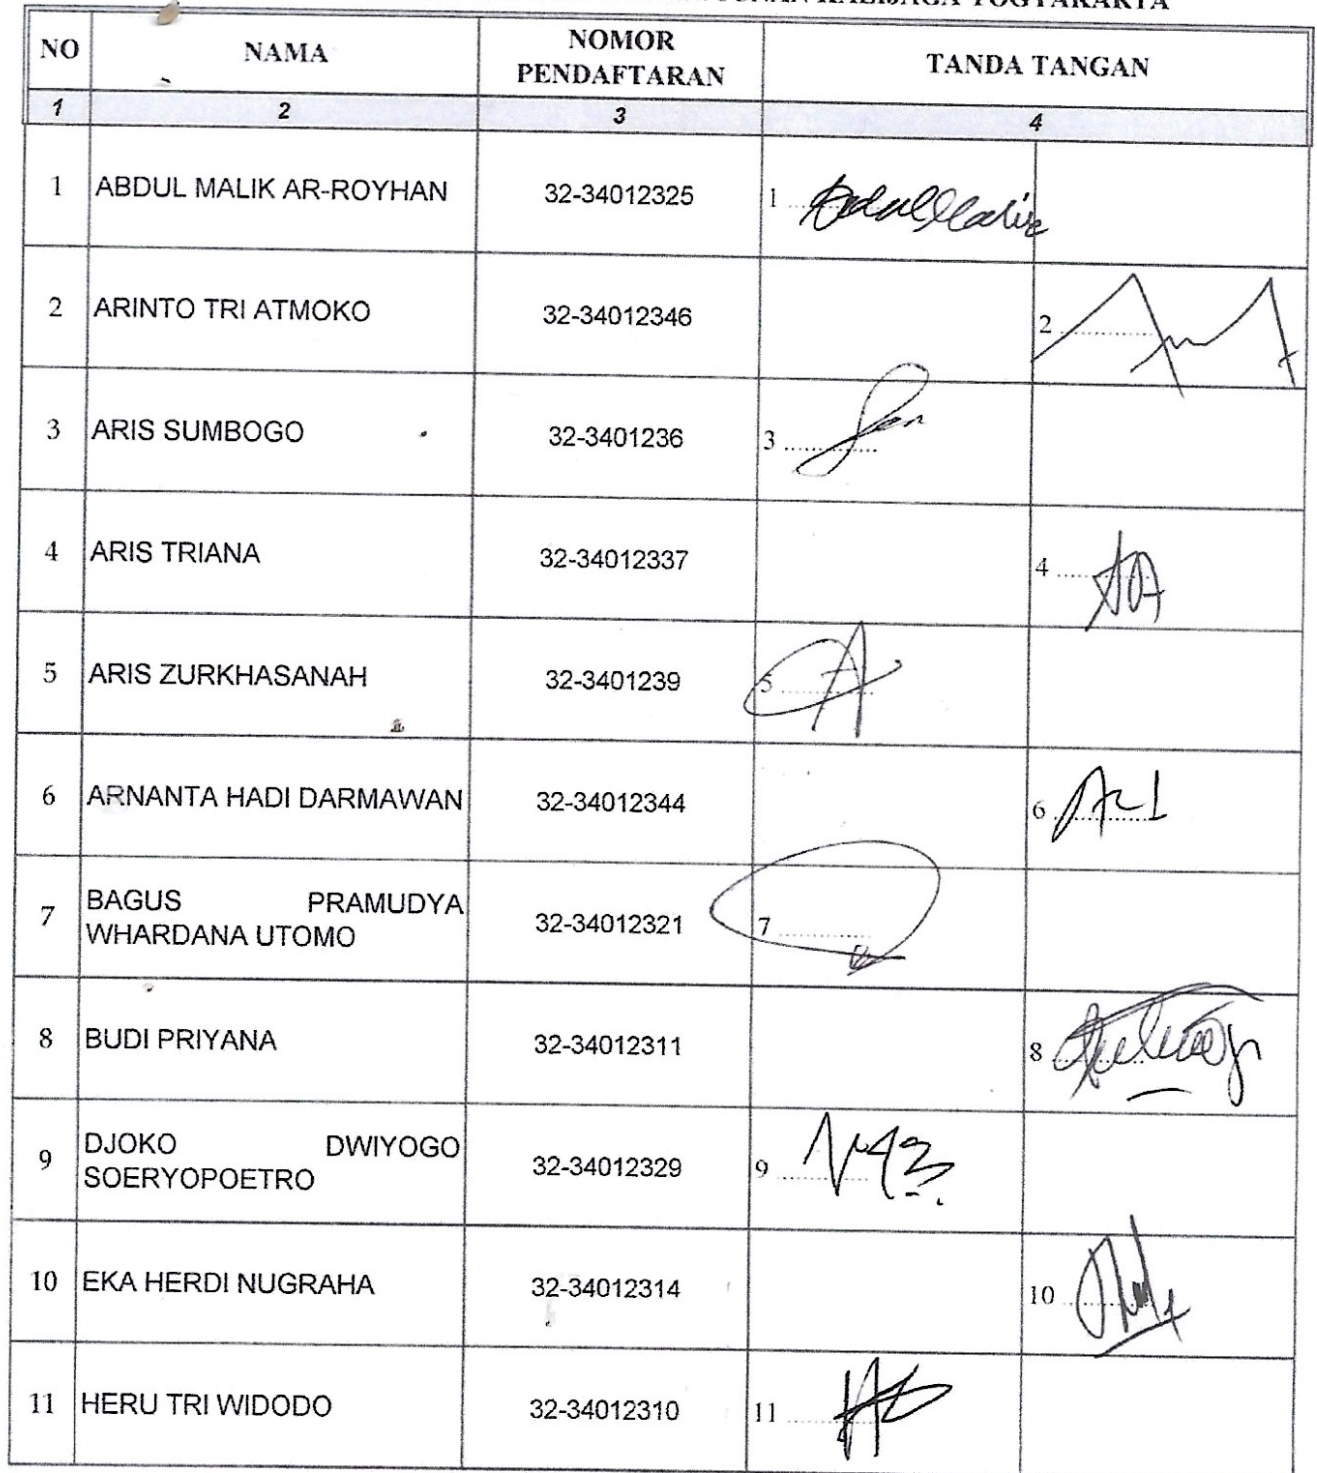 KALIJAGA YOGYAKARTA
NO NAMA NOMOR PENDAFTARAN TANDA TANGAN
1 2 3 4
1 ABDUL MALIK AR-ROYHAN 32-34012325 1
2 ARINTO TRI ATMOKO 32-34012346 2
3 ARIS SUMBOGO 32-3401236 3
4 ARIS TRIANA 32-34012337 4
5 ARIS ZURKHASANAH 32-3401239 5
6 ARNANTA HADI DARMAWAN 32-34012344 6
7 BAGUS PRAMUDYA
WHARDANA UTOMO 32-34012321 7
8 BUDI PRIYANA 32-34012311 8
9 DJOKO DWIYOGO
SOERYOPOETRO 32-34012329 9
10 EKA HERDI NUGRAHA 32-34012314 10
11 HERU TRI WIDODO 32-34012310 11